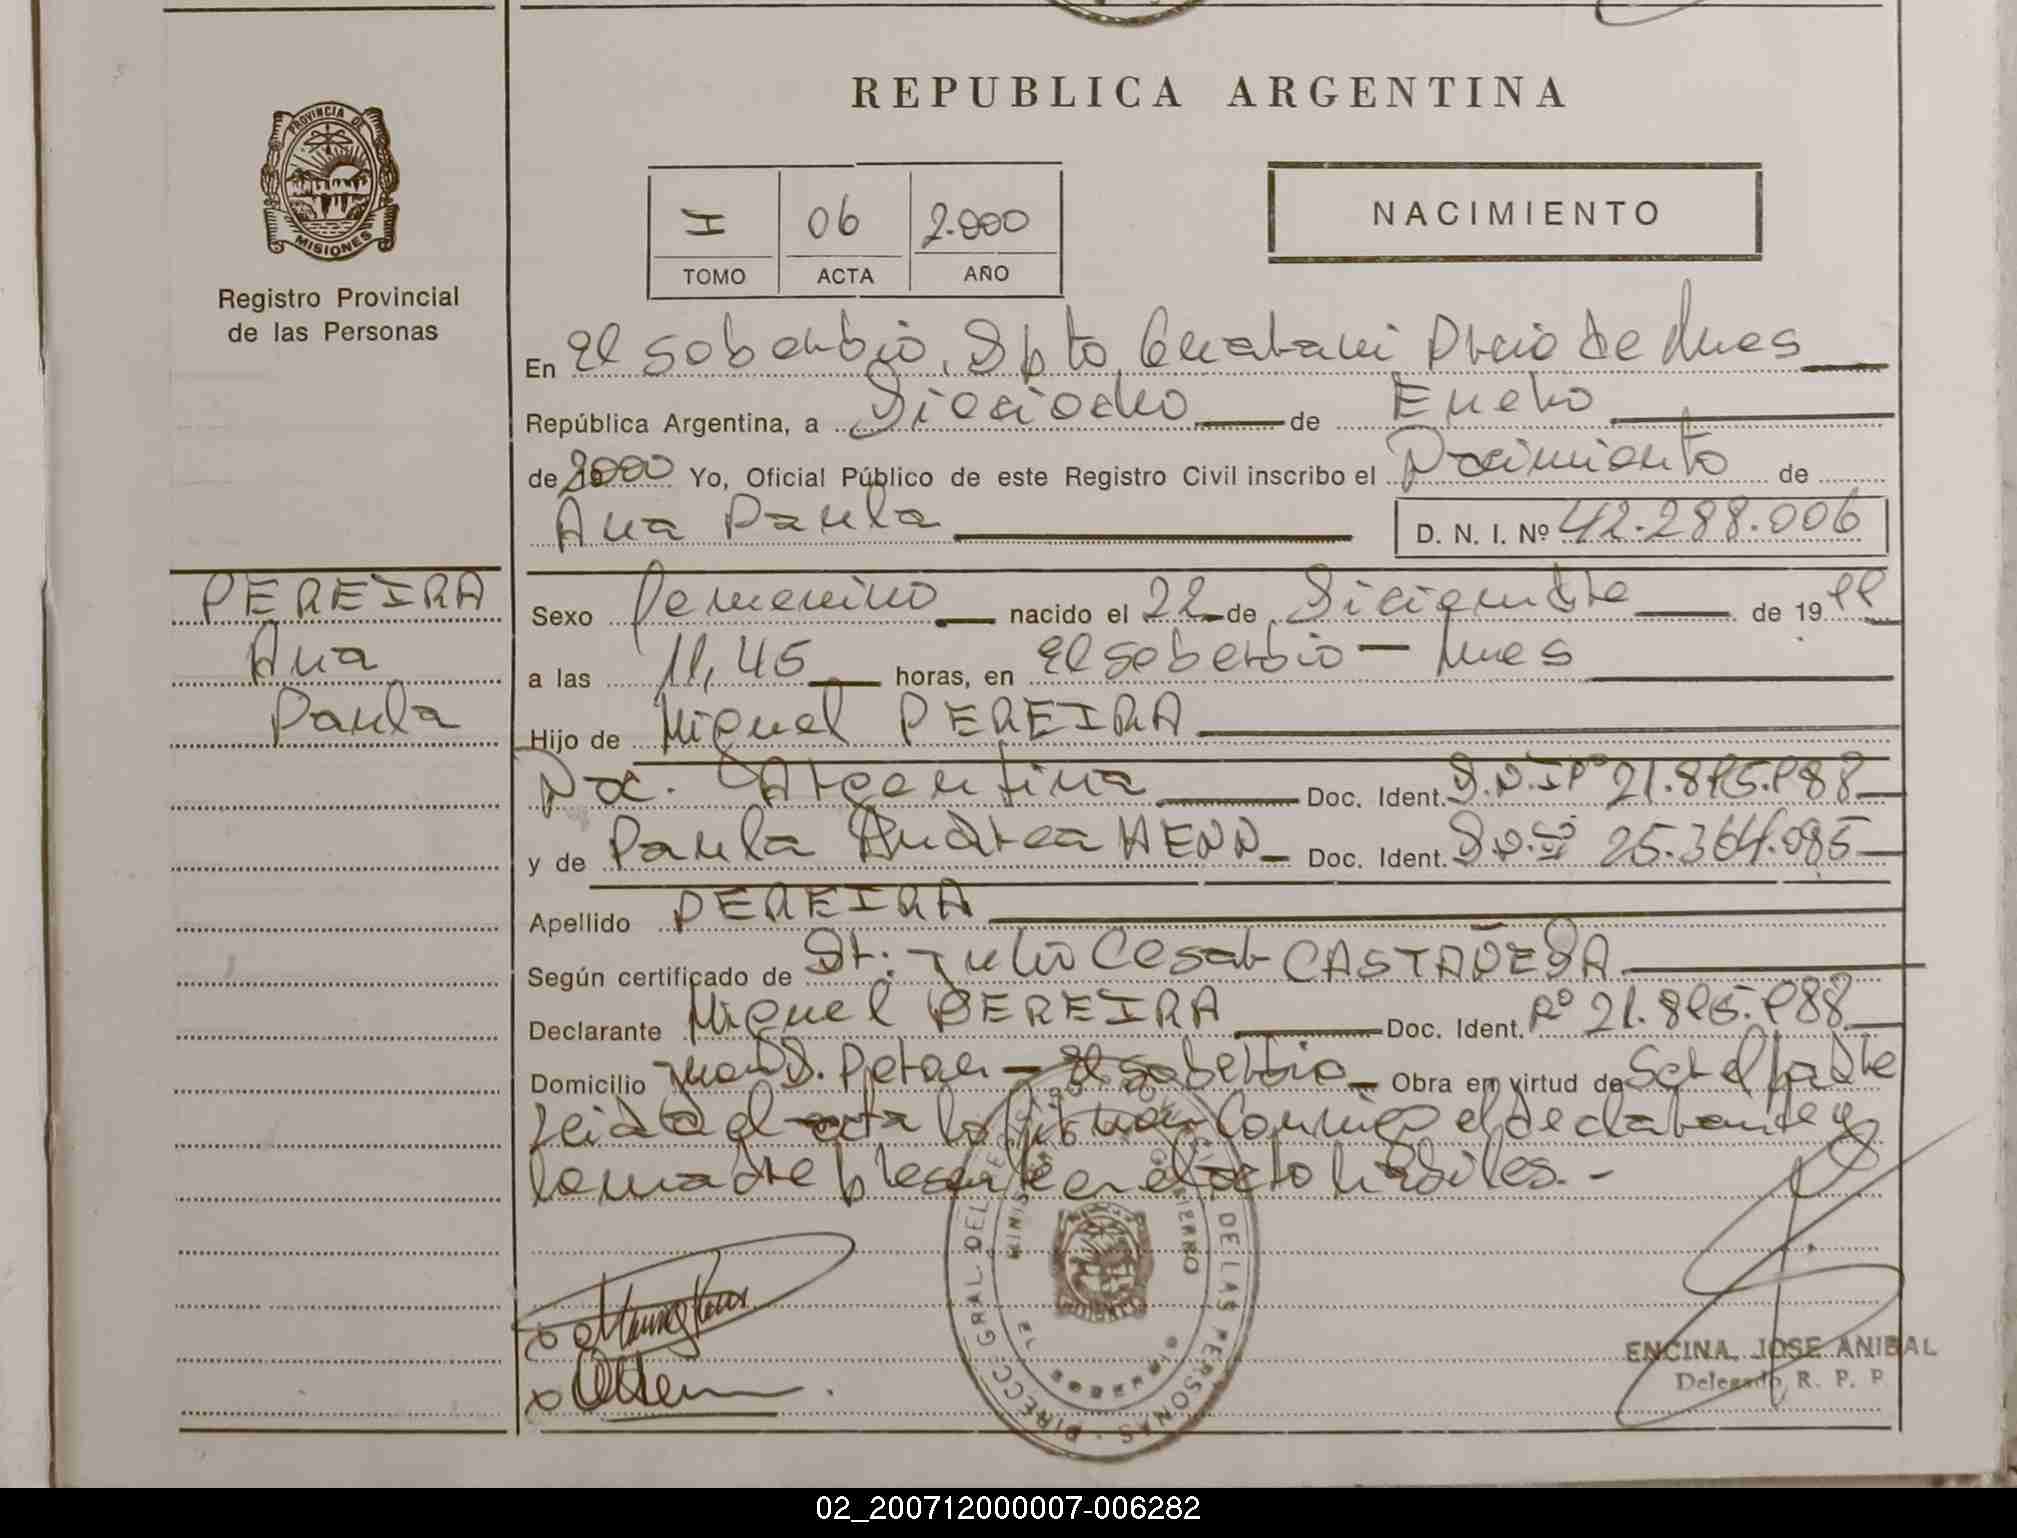 REPUBLICA ARGENTINA
PROVINCIA DE
MISIONES
Registro Provincial
de las Personas
I 06 2.000
TOMO ACTA AÑO
NACIMIENTO
En El soberbio, Dpto Guarani Pncia de Mnes
República Argentina, a Dieciocho de Enero
de 2000 Yo, Oficial Público de este Registro Civil inscribo el Nacimiento de
Ana Paula D. N. I. Nº 42.288.006
PEREIRA
Ana
Paula
Sexo Femenino nacido el 22 de Diciembre de 1999
a las 11,45 horas, en El soberbio - Mnes
Hijo de Miguel PEREIRA
Nac. Argentina Doc. Ident. D.N.I Nº 21.895.988
y de Paula Andrea HENN Doc. Ident. D.N.I 25.364.095
Apellido PEREIRA
Según certificado de Dr. Julio Cesar CASTAÑEDA
Declarante Miguel PEREIRA Doc. Ident. Nº 21.895.988
Domicilio Juan D. Peron - El soberbio Obra en virtud de Ser el padre
Leida el acta la firman Conmigo el declarante y
la madre presente en el acto
DIRECC. GRAL. DEL REGISTRO PROVINCIAL DE LAS PERSONAS
MINISTERIO GOBIERNO
MISIONES
SOBERBIO
ENCINA JOSE ANIBAL
Delegado R. P. P
02_200712000007-006282